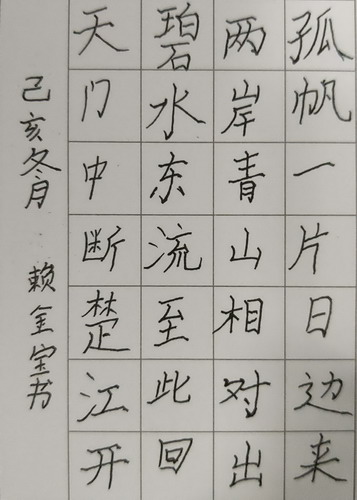 天门中断楚江开
碧水东流至此回
两岸青山相对出
孤帆一片日边来
己亥冬月 赖金宝书